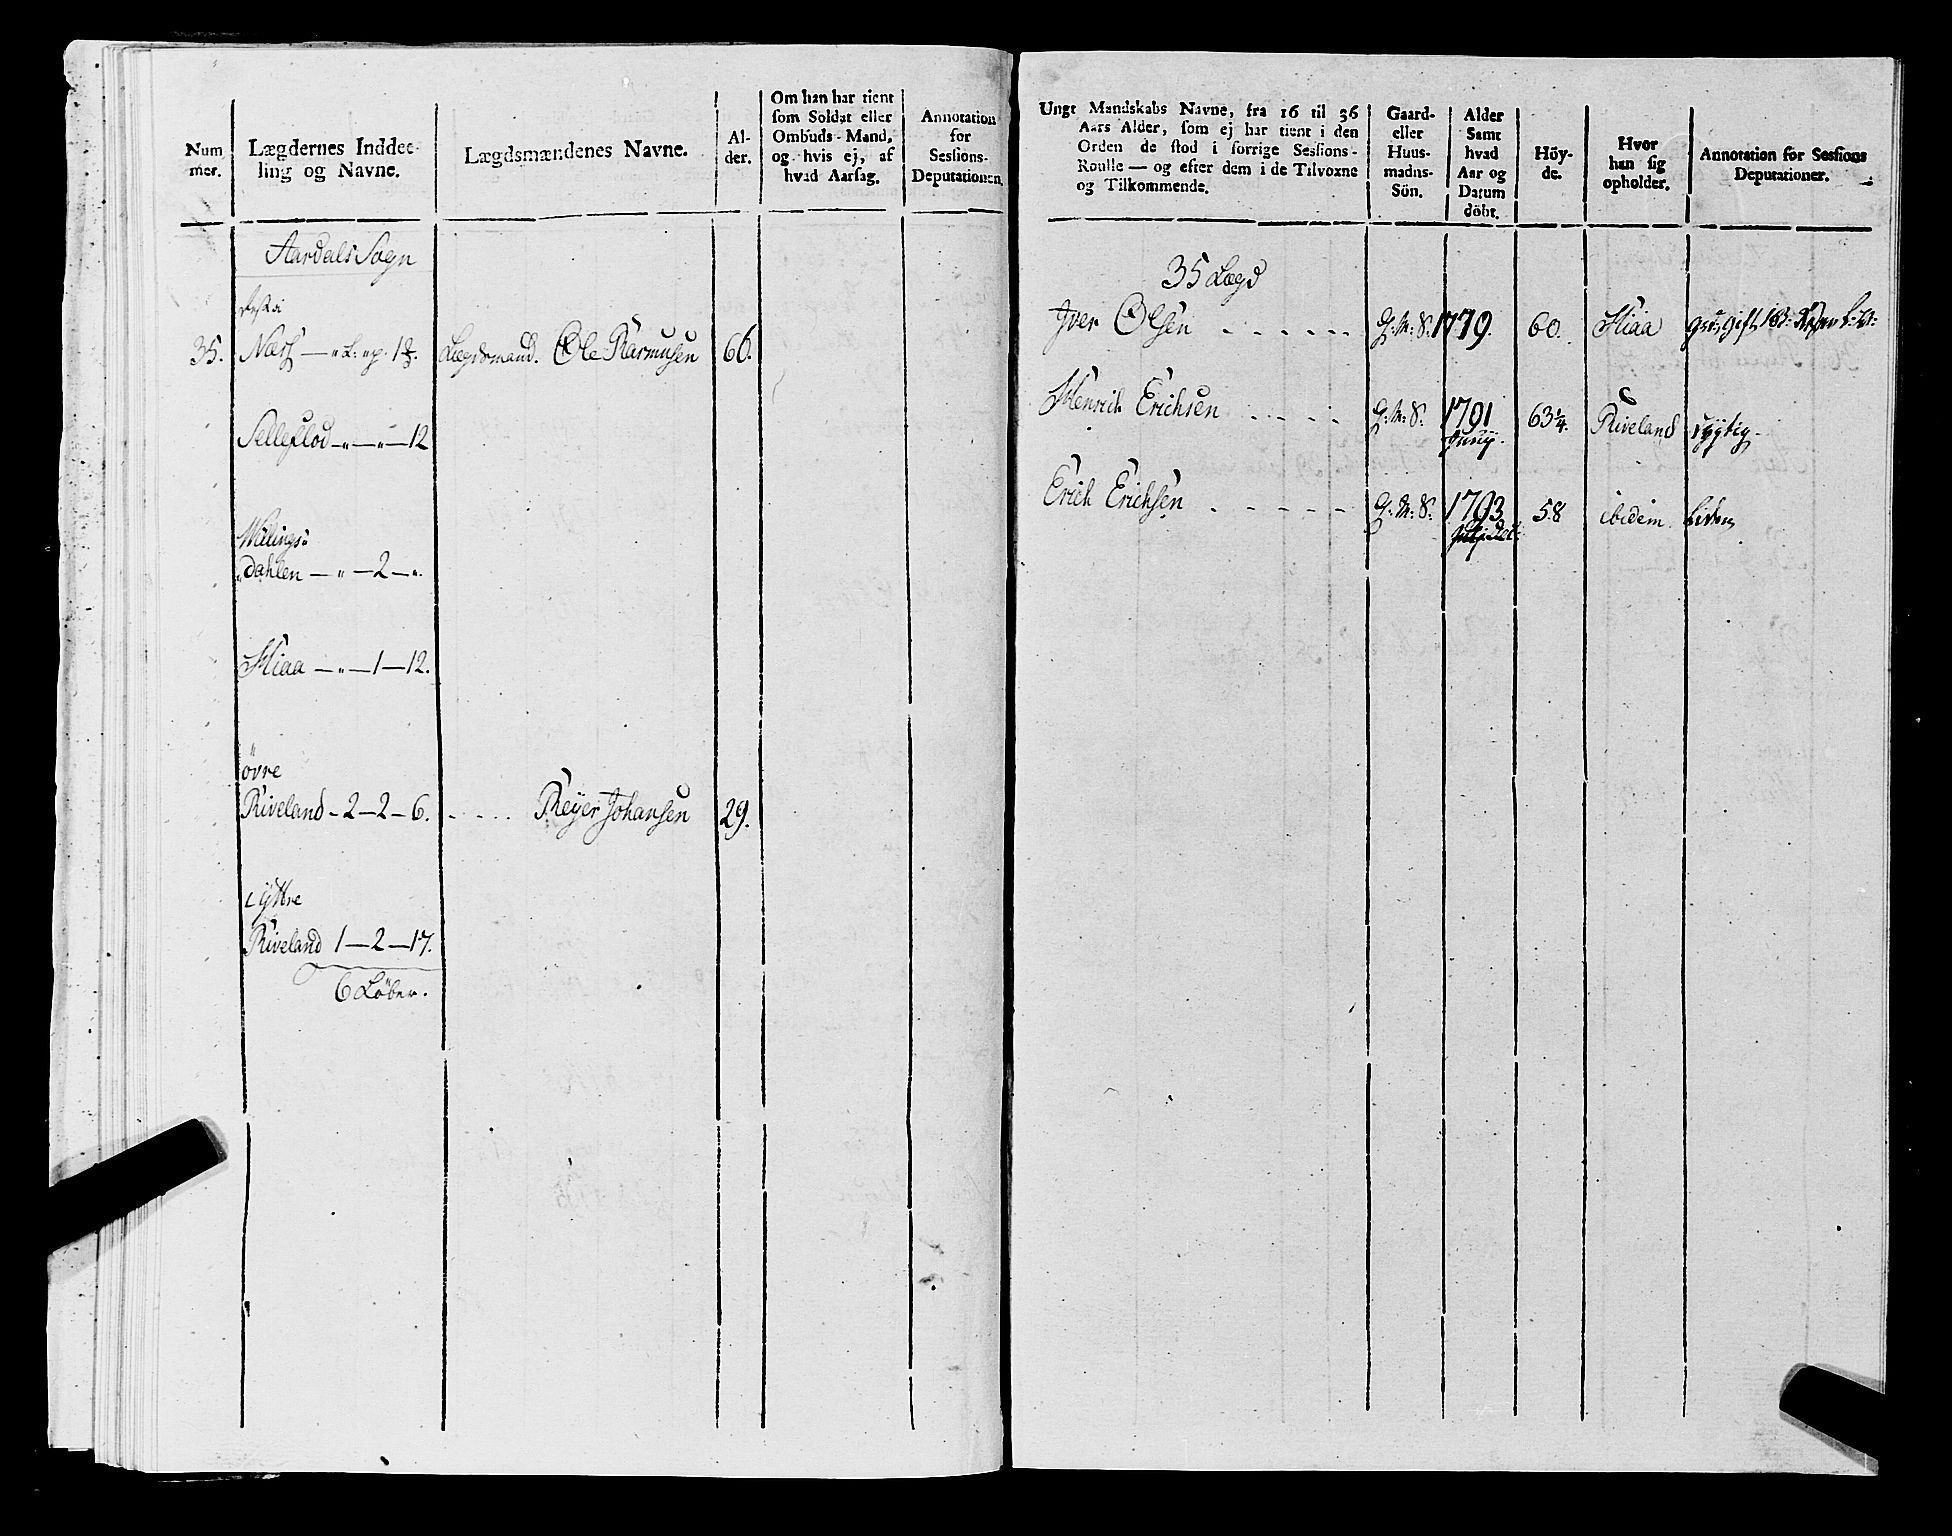 Num
mer.
Lægdernes Inddee-
ling og Navne.
Lægdsmændenes Navne.
Al-
der.
Om han har tient
som Soldat eller
Ombuds-Mand,
og hvis ej, af
hvad Aarsag.
Annotation
for
Sessions-
Deputationen.
Aardals Sogn
35. Næss
Lægdsmand. Ole Rasmusen 66.
Selleflod 12
Wællings-
dahlen — „ — 2 — „.
Hiaa — „ — 1 — 12.
övre
Riveland - 2 - 2 - 6. Reÿer Johansen 29.
ÿttre
Riveland 1 — 2 — 17.
6 Löber.
Ungt Mandskabs Navne, fra 16 til 36
Aars Alder, som ej har tient i den
Orden de stod i forrige Sessions-
Roulle — og efter dem i de Tilvoxne
og Tilkommende.
Gaard-
eller
Huus-
madns-
Sön.
Alder
Samt
hvad
Aar og
Datum
döbt.
Höy-
de.
Hvor
han sig
opholder.
Annotation for Sessions
Deputationer.
35 Lægd
Iver Olsen G: M: S. 1779. 60. Hiaa
Henrich Erichsen G: M: S. 1791 63 1/4. Riveland dygtig
Erich Erichsen G: M: S. 1793 58 ibidem. liden